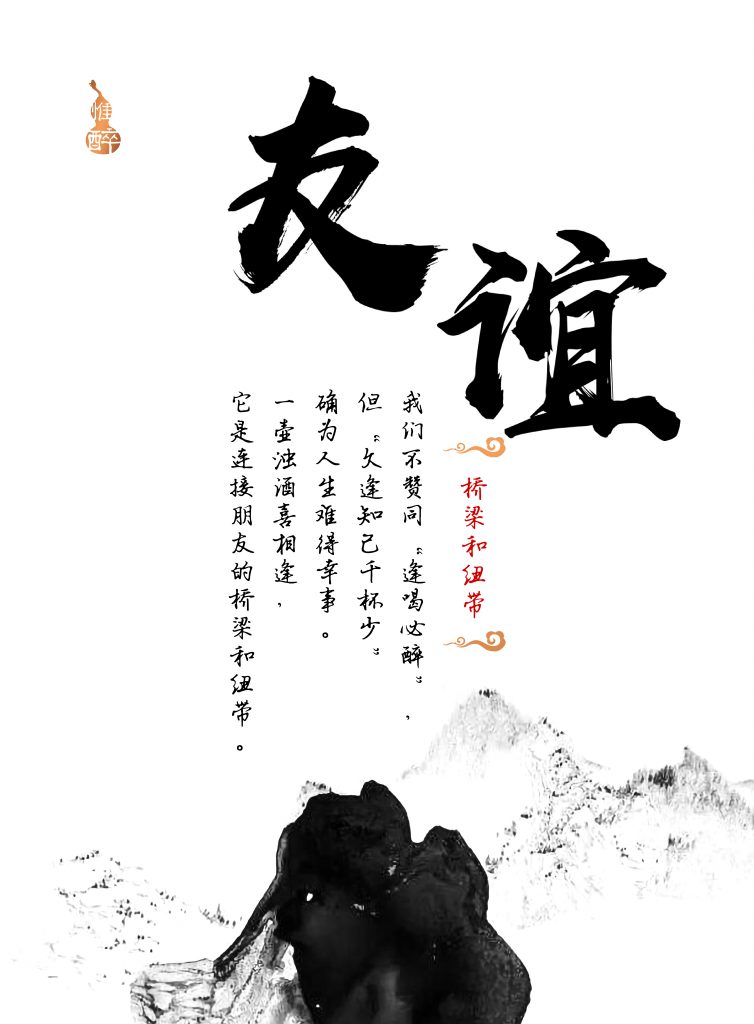 惟
醉
友
谊
桥梁和纽带
我们不赞同“逢喝必醉”，
但“欠逢知己千杯少”
确为人生难得幸事。
一壶浊酒喜相逢，
它是连接朋友的桥梁和纽带。